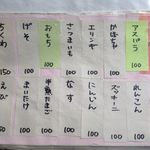 アスパラ
100
かぼちゃ
100
エリンギ
100
さつまいも
100
おもち
100
げそ
100
ちくわ
150
れんこん
100
ズッキーニ
100
にんじん
100
なす
100
半熟たまご
100
まいたけ
100
えび